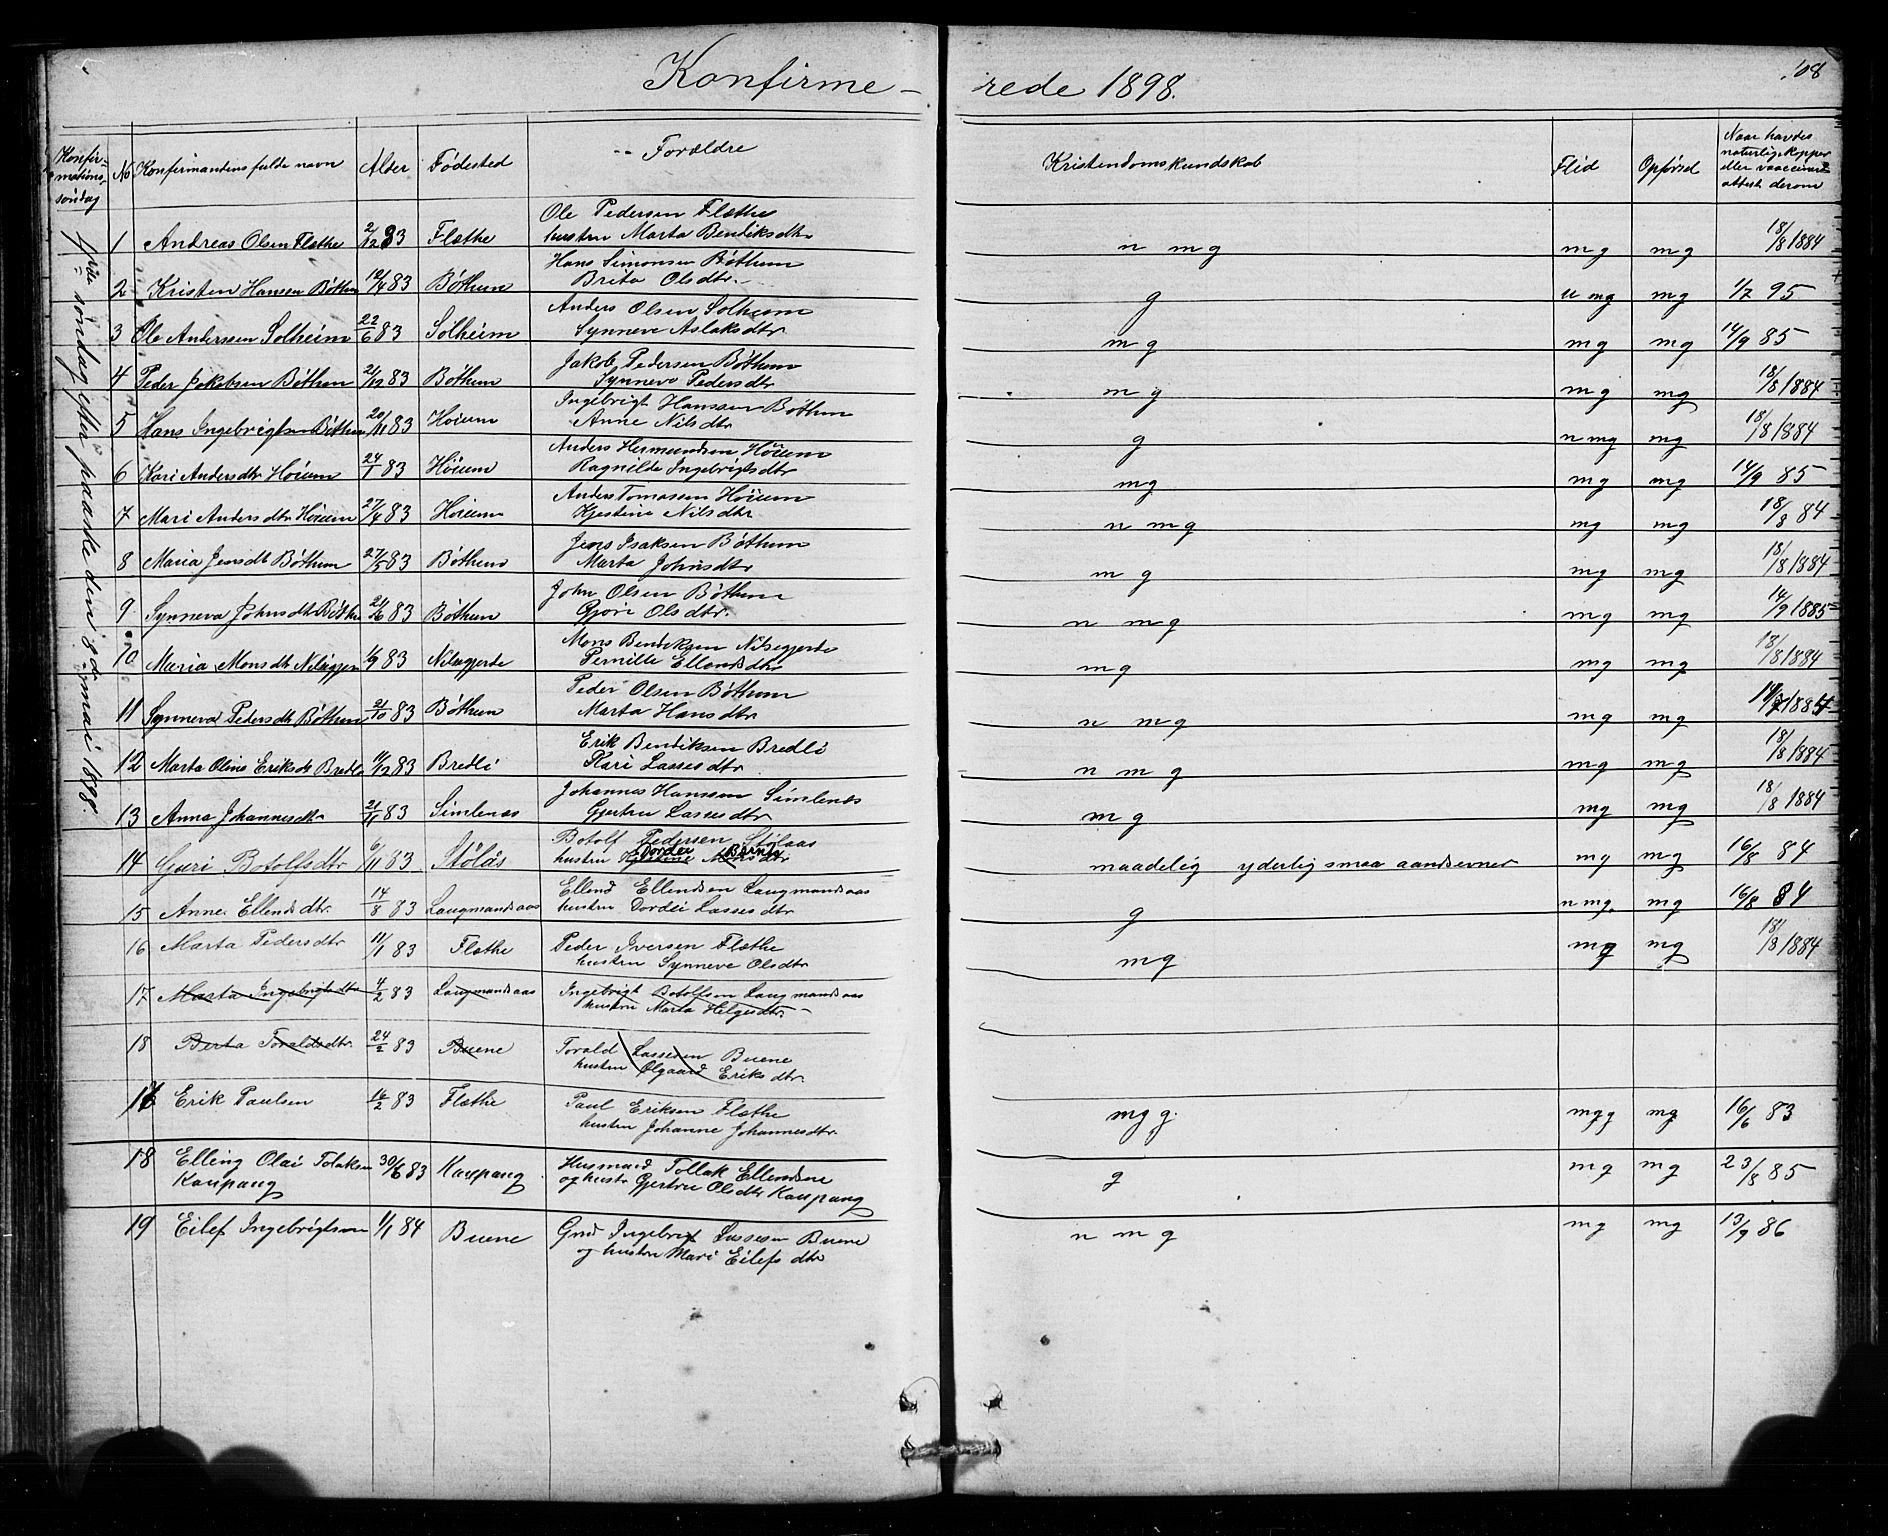 Konfirme - rede 1898.
108
Konfir=
mations
søndag
No
Konfirmandens fulde navn
Alder
Fødested
Forældre
Kristendomskundskab
Flid
Opførsel
Naar havdes
naturlige kopper
eller vaccineret
attest derom
søndag efter paaske den 8de mai 1898.
1 Andreas Olsen Flæthe 2/12 83 Flæthe Ole Pedersen Flæthe n mg mg mg 18/8 1884
hustru Marta Bendiksdtr
2 Kristen Hanssen Bøthun 12/4 83 Bøthum Hans Simonsen Bøthum g n mg mg 1/7 95
Brita Olsdtr.
3 Ole Anderssen Solheim 22/6 83 Solheim Anders Olsen Solheim mg mg mg 14/9 85
Synneve Aslaksdtr
4 Peder Jakobsen Bøthum 21/12 83 Bøthum Jakob Pedersen Bøthum mg mg mg 18/8 1884
Synneva Pedersdtr
5 Hans Ingebrigtsen Bøthun 20/11 83 Hoium Ingebrigt Hanssen Bøthum g n mg mg 18/8 1884
Anne Nilsdtr
6 Kari Andersdtr Hoium 24/1 83 Høium Anders Hermundsen Høium mg mg mg 14/9 85
Ragnilde Ingebrigtsdtr
7 Mari Andersdtr Høium 27/4 83 Hoium Anders Tomassen Høium n mg mg mg 18/8 84
Kjestine Nilsdtr
8 Maria Jensdt Bøthum 27/5 83 Bøthum Jens Isaksen Bøthum mg mg mg 18/8 1884
Marta Johnsdtr
9 Synneva Johnsdt Bøthu 21/6 83 Bøthum John Olsen Bøthum n mg mg mg 14/9 1885
Gjøri Olsdtr.
10 Maria Monsdt Nilsgjer 1/9 83 Nilsgjerde Mons Bendiksen Nilsegjerde mg mg mg 18/8 1884
Pernille Ellendsdtr
11 Synneva Pedersdt Bøthum 21/10 83 Bøthum Peder Olsen Bøthum n mg mg mg
Marta Hansdtr
12 Marta Oline Eriksdt Bredl 11/12 83 Bredli Erik Bendiksen Bredli n mg mg mg 18/8 1884
Kari Lassesdtr
13 Anna Johannesdtr 21/11 83 Simlenæs Johannes Hanssen Simlenæs mg mg mg 18/8 1884
Gjertru Lassesdtr
14 Guri Botolfsdtr 6/11 83 Stølås Botolf Pedersen Stølaas maadelig yderlig smaa aandsevner mg mg 16/8 84
Dordei
hustru Kjestine
15 Anne Ellendsdtr. 14/8 83 Laugmandsaas Ellend Ellendsen Laugmandsaas g n mg. mg 16/8 84
hustru Dordei Lassesdtr
16 Marta Pedersdtr 11/1 83 Flæthe Peder Iversen Flæthe mg mg mg 18/8 1884
hustru Synneve Olsdtr
17 Marta Ingebrigtsdtr 4/2 83 Laugmandsaas Ingebrigt Botolfsen Laugmandsaas
hustru Marta Helgesdtr.
18 Berta Toraldsdtr. 24/2 83 Buene Torald Lassesen Buene
hustru Olgaard Eriksdtr.
17 Erik Paulsen 16/2 83 Flæthe Paul Eriksen Flæthe mg g. mg g mg 16/6 83
hustru Johanne Johannesdtr
18 Elling Olai Tolaksen 30/6 83 Kaupang Husmand Tollak Ellendsen g mg mg 23/8 85
Kaupang og hustr Gjertru Olsdtr Kaupang
19 Eilef Ingebrigtsen 1/1 84 Buene Grd Ingebrigt Lassesen Buene n mg mg mg 13/9 86
og hustru Mari Eilefsdtr